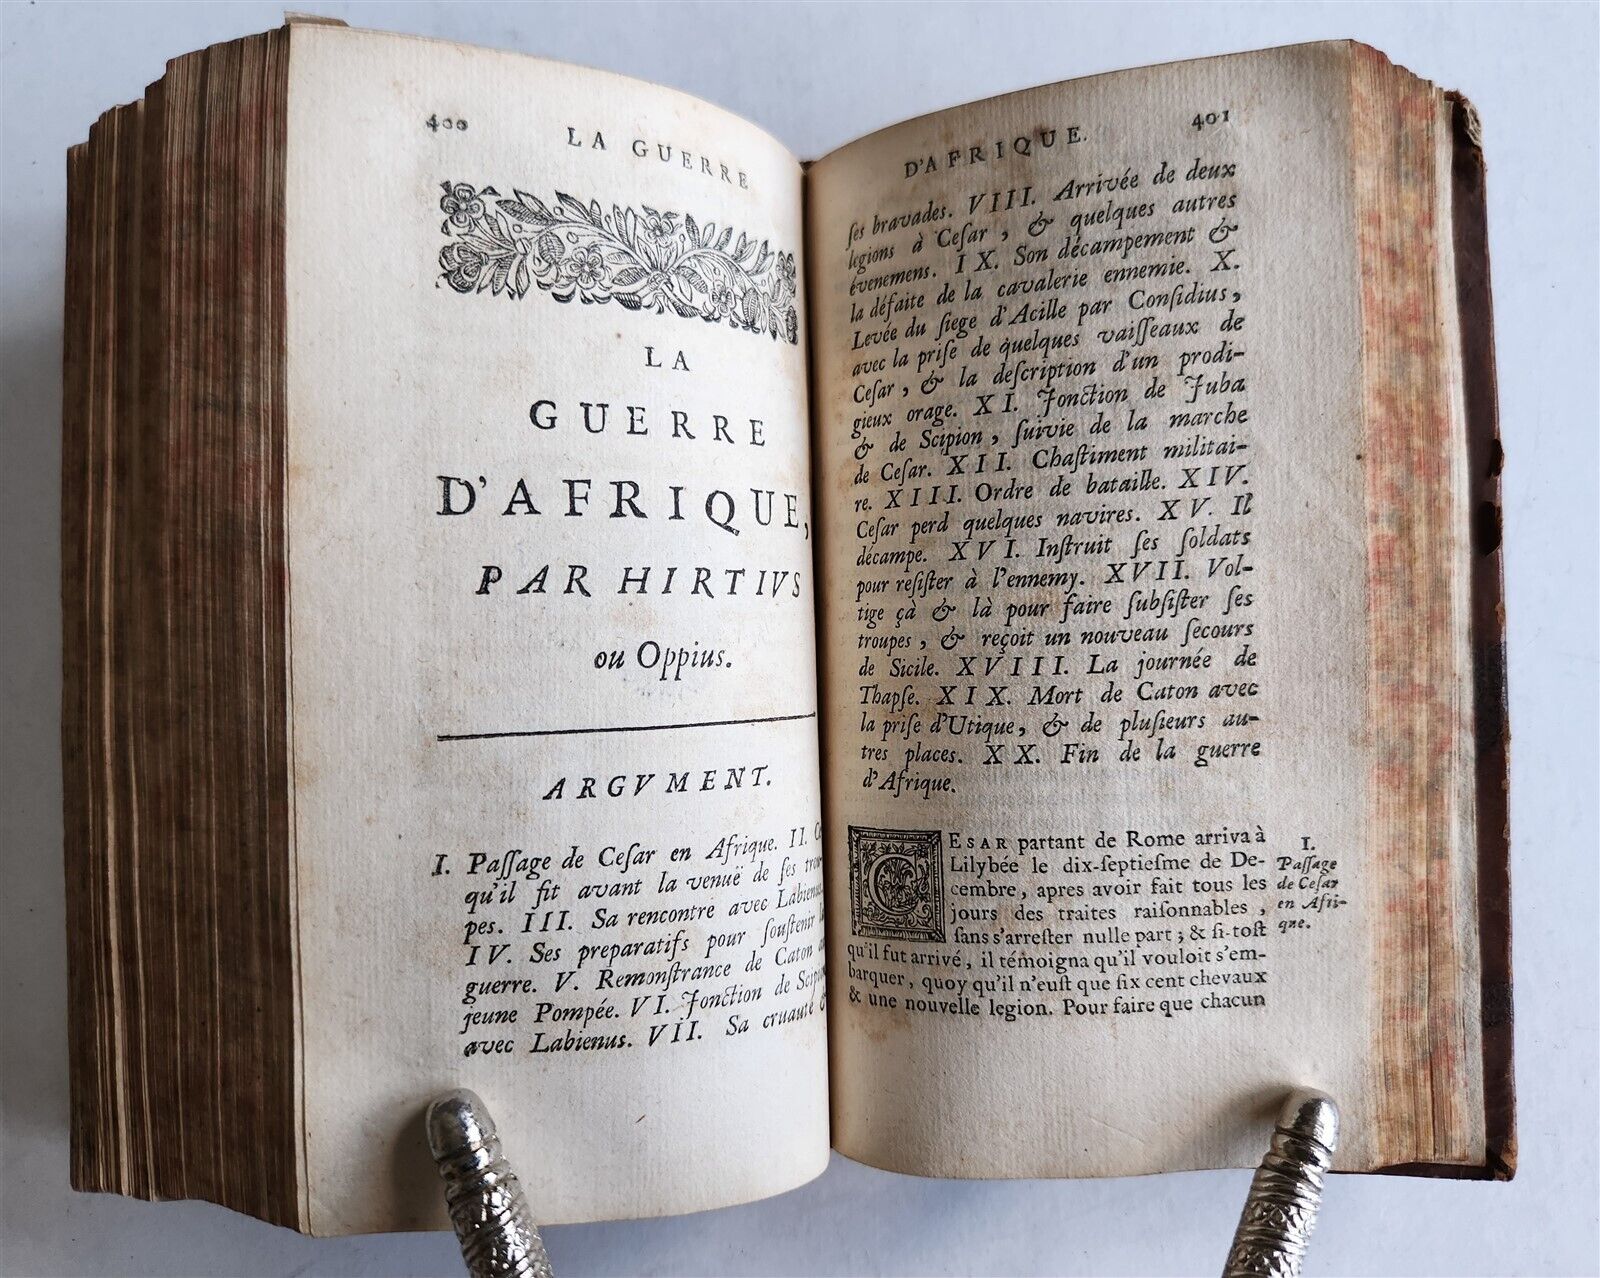 400
LA GUERRE
LA
GUERRE
D'AFRIQUE,
PAR HIRTIVS
ou Oppius.
ARGVMENT.
I. Paſſage de Ceſar en Afrique. II.
qu'il fit avant la venuë de ſes trou-
pes. III. Sa rencontre avec Labienus
IV. Ses preparatifs pour ſouſtenir
guerre. V. Remonſtrance de Caton
jeune Pompée. VI. Jonction de
avec Labienus. VII. Sa cruauté
D'AFRIQUE. 401
ſes bravades. VIII. Arrivée de deux
legions à Ceſar, & quelques autres
évenemens. IX. Son décampement &
la défaite de la cavalerie ennemie. X.
Levée du ſiege d'Acille par Conſidius,
avec la priſe de quelques vaiſſeaux de
Ceſar, & la deſcription d'un prodi-
gieux orage. XI. Jonction de Juba
& de Scipion, ſuivie de la marche
de Ceſar. XII. Chaſtiment militai-
re. XIII. Ordre de bataille. XIV.
Ceſar perd quelques navires. XV. Il
décampe. XVI. Inſtruit ſes ſoldats
pour reſiſter à l'ennemy. XVII. Vol-
tige çà & là pour faire ſubſiſter ſes
troupes, & reçoit un nouveau ſecours
de Sicile. XVIII. La journée de
Thapſe. XIX. Mort de Caton avec
la priſe d'Utique, & de pluſieurs au-
tres places. XX. Fin de la guerre
d'Afrique.
CESAR partant de Rome arriva à
Lilybée le dix-ſeptieſme de De-
cembre, apres avoir fait tous les
jours des traites raiſonnables,
ſans s'arreſter nulle part; & ſi-toſt
qu'il fut arrivé, il témoigna qu'il vouloit s'em-
barquer, quoy qu'il n'euſt que ſix cent chevaux
& une nouvelle legion. Pour faire que chacun
I.
Paſſage
de Ceſar
en Afri-
que.